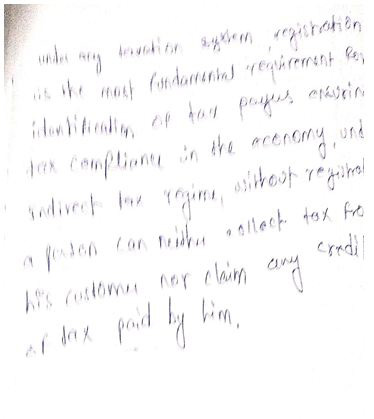 under any taxation system registration
is the most fundamental requirement for
identification of tax payers ensurin
tax compliance in the economy, und
indirect tax regime, without registrat
a person can neither collect tax fro
his customer nor claim any credit
of tax paid by him.